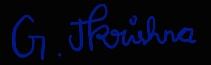 G. Jkrishna